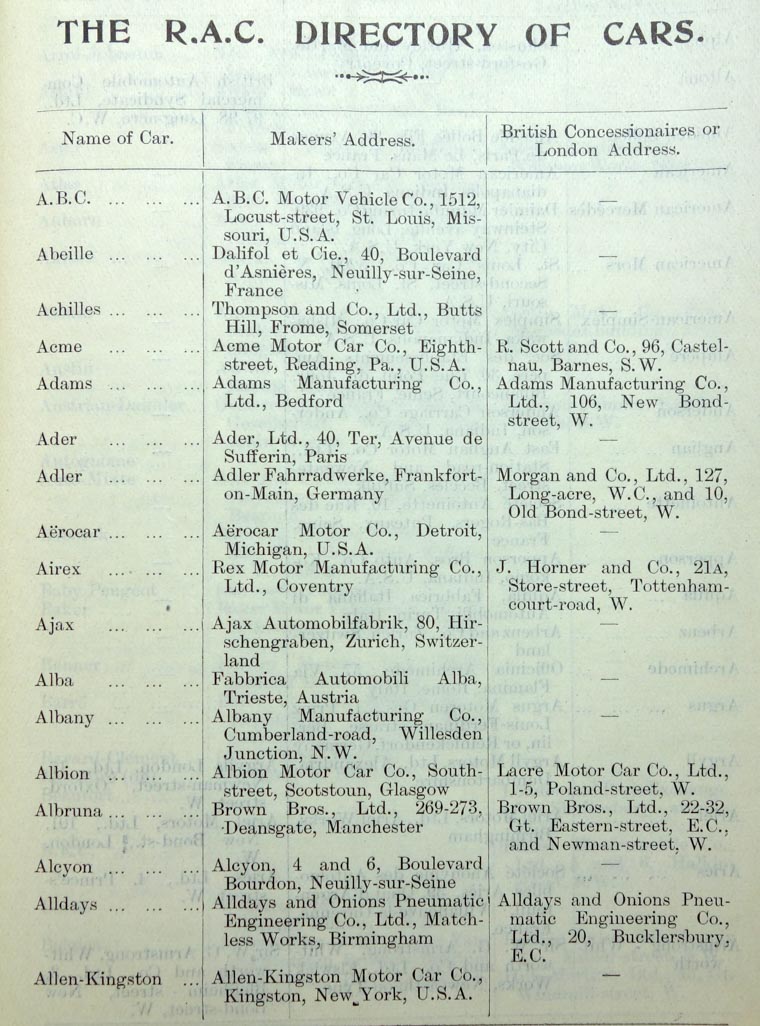 THE R.A.C. DIRECTORY OF CARS.
Name of Car.
Makers' Address.
British Concessionaires or
London Address.
A.B.C. ... ... ...
A.B.C. Motor Vehicle Co., 1512,
Locust-street, St. Louis, Mis-
souri, U.S.A.
—
Abeille ... ... ...
Dalifol et Cie., 40, Boulevard
d'Asnières, Neuilly-sur-Seine,
France
—
Achilles ... ... ...
Thompson and Co., Ltd., Butts
Hill, Frome, Somerset
—
Acme ... ... ...
Acme Motor Car Co., Eighth-
street, Reading, Pa., U.S.A.
R. Scott and Co., 96, Castel-
nau, Barnes, S.W.
Adams ... ... ...
Adams Manufacturing Co.,
Ltd., Bedford
Adams Manufacturing Co.,
Ltd., 106, New Bond-
street, W.
Ader ... ... ...
Ader, Ltd., 40, Ter, Avenue de
Sufferin, Paris
—
Adler ... ... ...
Adler Fahrradwerke, Frankfort-
on-Main, Germany
Morgan and Co., Ltd., 127,
Long-acre, W.C., and 10,
Old Bond-street, W.
Aërocar ... ... ...
Aërocar Motor Co., Detroit,
Michigan, U.S.A.
—
Airex ... ... ...
Rex Motor Manufacturing Co.,
Ltd., Coventry
J. Horner and Co., 21A,
Store-street, Tottenham-
court-road, W.
Ajax ... ... ...
Ajax Automobilfabrik, 80, Hir-
schengraben, Zurich, Switzer-
land
—
Alba ... ... ...
Fabbrica Automobili Alba,
Trieste, Austria
—
Albany ... ... ...
Albany Manufacturing Co.,
Cumberland-road, Willesden
Junction, N.W.
—
Albion ... ... ...
Albion Motor Car Co., South-
street, Scotstoun, Glasgow
Lacre Motor Car Co., Ltd.,
1-5, Poland-street, W.
Albruna ... ... ...
Brown Bros., Ltd., 269-273,
Deansgate, Manchester
Brown Bros., Ltd., 22-32,
Gt. Eastern-street, E.C.,
and Newman-street, W.
Alcyon ... ... ...
Alcyon, 4 and 6, Boulevard
Bourdon, Neuilly-sur-Seine
—
Alldays ... ... ...
Alldays and Onions Pneumatic
Engineering Co., Ltd., Match-
less Works, Birmingham
Alldays and Onions Pneu-
matic Engineering Co.,
Ltd., 20, Bucklersbury,
E.C.
Allen-Kingston ...
Allen-Kingston Motor Car Co.,
Kingston, New York, U.S.A.
—